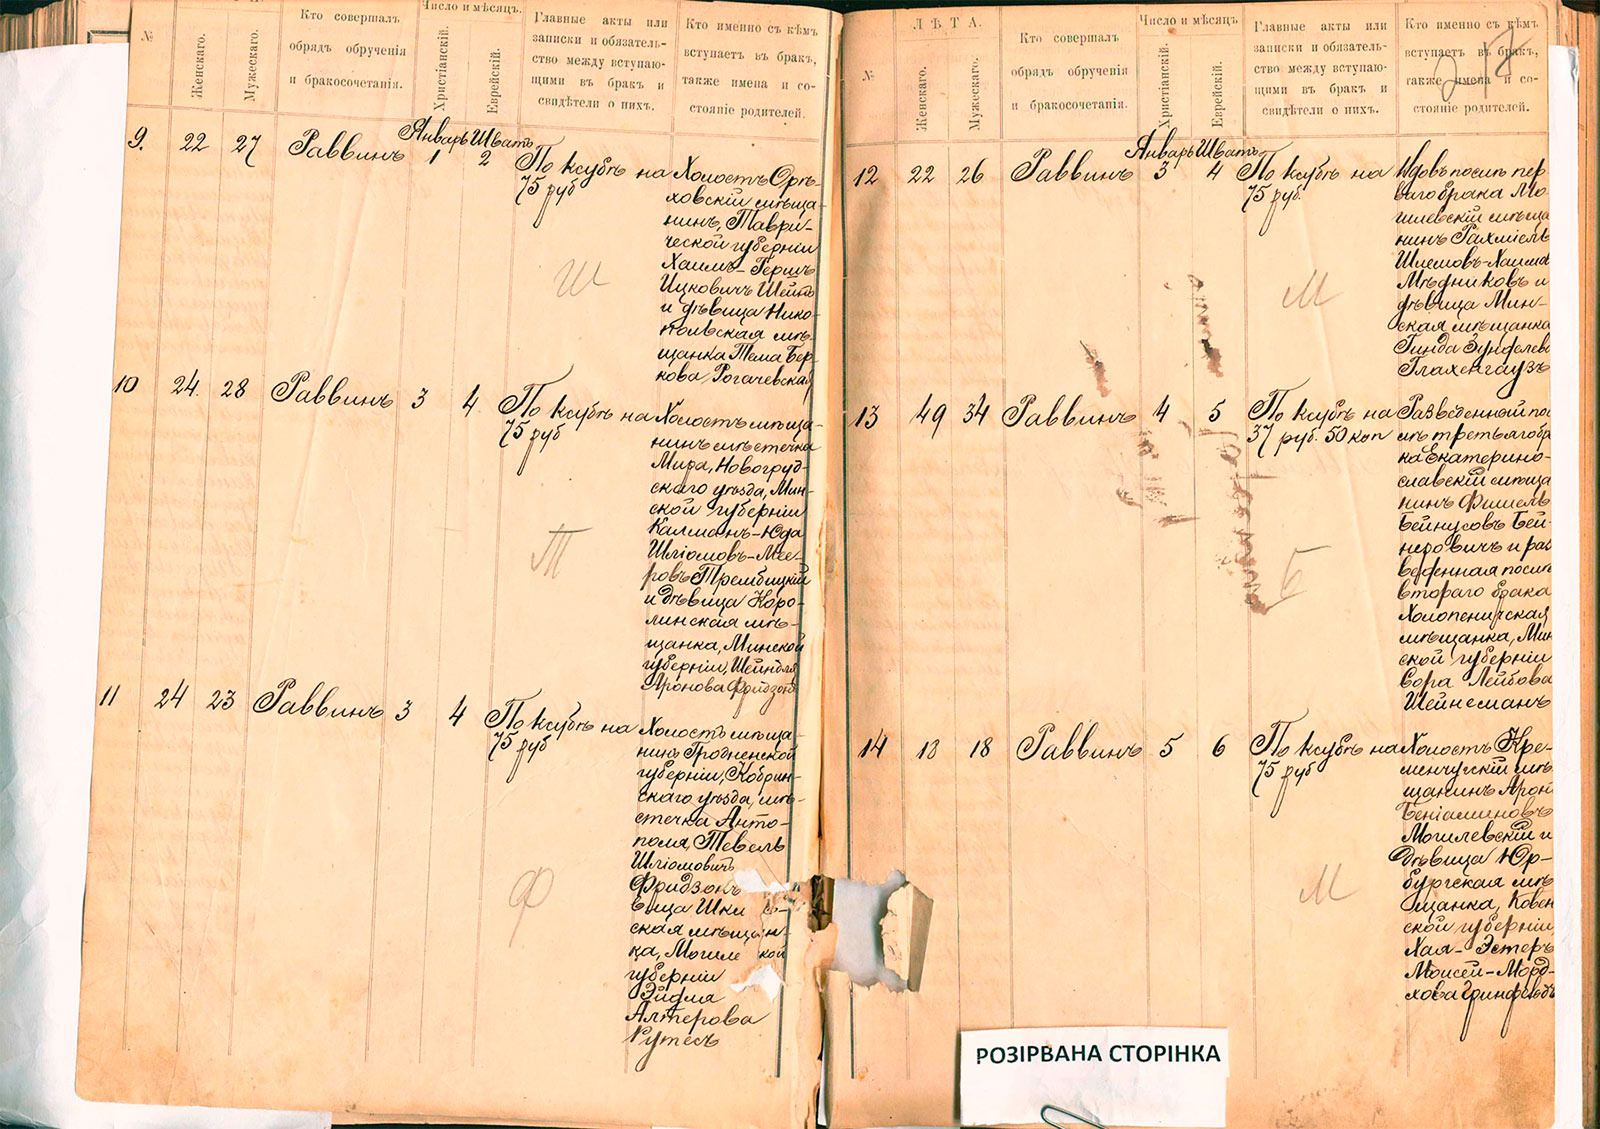 №
Женскаго.
Мужескаго.
Кто совершалъ
обрядъ обрученія
и бракосочетанія.
Число и мѣсяцъ.
Христіанскій.
Еврейскій.
Главные акты или
записки и обязатель-
ство между вступаю-
щими въ бракъ и
свидѣтели о нихъ.
Кто именно съ кѣмъ
вступаетъ въ бракъ,
также имена и со-
стояніе родителей.
9. 22 27 Раввинъ
Январь Шватъ
1 2
По ксубѣ на
75 руб
Холостъ Орѣ-
ховскій мѣща-
нинъ, Таври-
ческой губерніи
Хаимъ-Гершъ
Ицковичъ
и дѣвица Нико-
польская мѣ-
щанка Тема Бер-
кова Рогачевская
Ш
10 24. 28 Раввинъ 3 4
По ксубѣ на
75 руб
Холостъ мѣща-
нинъ мѣстечка
Мира, Новогруд-
скаго уѣзда, Мин-
ской губерніи
Калманъ-Юда
Шліомовъ-Мее-
ровъ Трембицкій
и дѣвица Коро-
линская мѣ-
щанка, Минской
губерніи, Шейндля
Аронова Фридзонъ
Т
11 24 23 Раввинъ 3 4
По ксубѣ на
75 руб
Холостъ мѣща-
нинъ Гродненской
губерніи, Кобрин-
скаго уѣзда, мѣ-
стечка Анто-
поля, Тевель
Шліомовичъ
Фридзонъ
вица Шкл о-
ская мѣщан-
ка, Могиле кой
губерніи
Эйдля
Алтерова
Рутесъ
Ф
ЛѢТА.
№
Женскаго.
Мужескаго.
Кто совершалъ
обрядъ обрученія
и бракосочетанія.
Число и мѣсяцъ
Христіанскій.
Еврейскій.
Главные акты или
записки и обязатель-
ство между вступаю-
щими въ бракъ и
свидѣтели о нихъ.
Кто именно съ кѣмъ
вступаетъ въ бракъ,
также имена и со-
стояніе родителей.
12 22 26 Раввинъ
Январь Шватъ
3 4
По ксубѣ на
75 руб.
Вдовъ послѣ пер
ваго брака Мо-
гилевскій мѣща
нинъ Рахміель
Шлемовъ-Хаима
Мѣдниковъ и
дѣвица Мин-
ская мѣщанка
Гинда Зунделева
Глахенгаузъ
М
13 49 34 Раввинъ 4 5
По ксубѣ на
37 руб. 50 коп
Разведенный пос
лѣ третьяго бра
ка Екатерино-
славскій мѣща
нинъ Фишель
Бейнусовъ Бей-
неровичъ и раз
веденная послѣ
втораго брака
Холопеничская
мѣщанка, Мин
ской губерніи
Сора Лейбова
Шейнеманъ
Б
14 18 18 Раввинъ 5 6
По ксубѣ на
75 руб
Холостъ Кре-
менчугскій мѣ
щанинъ Аронъ
Беніаминовъ
Могилевскій и
дѣвица Юр-
бургская мѣ
щанка, Ковен
ской губерніи,
Хая-Эстеръ
Моисей-Морд-
хова Гринфельдъ
М
РОЗІРВАНА СТОРІНКА